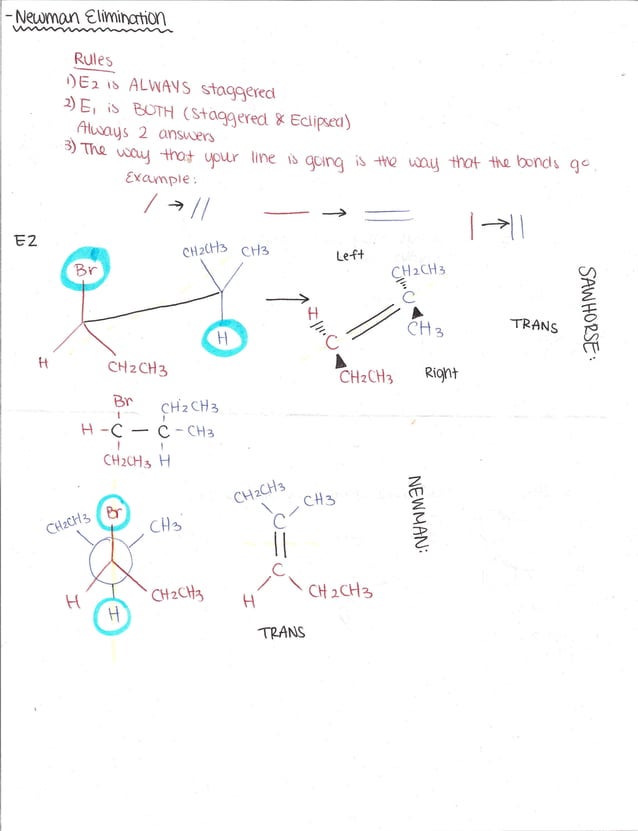 - Newman Elimination
Rules
1) E2 is ALWAYS staggered
2) E1 is BOTH (Staggered & Eclipsed)
Always 2 answers
3) The way that your line is going is the way that the bonds go.
Example:
E2
Br
CH2CH3 CH3
H
H
CH2CH3
Left
CH2CH3
C
CH3
H
C
CH2CH3
Right
TRANS
SAWHORSE:
Br CH2CH3
H - C - C - CH3
CH2CH3 H
CH2CH3
Br
CH3
H
CH2CH3
H
CH2CH3
CH3
C
C
H
CH2CH3
TRANS
NEWMAN: